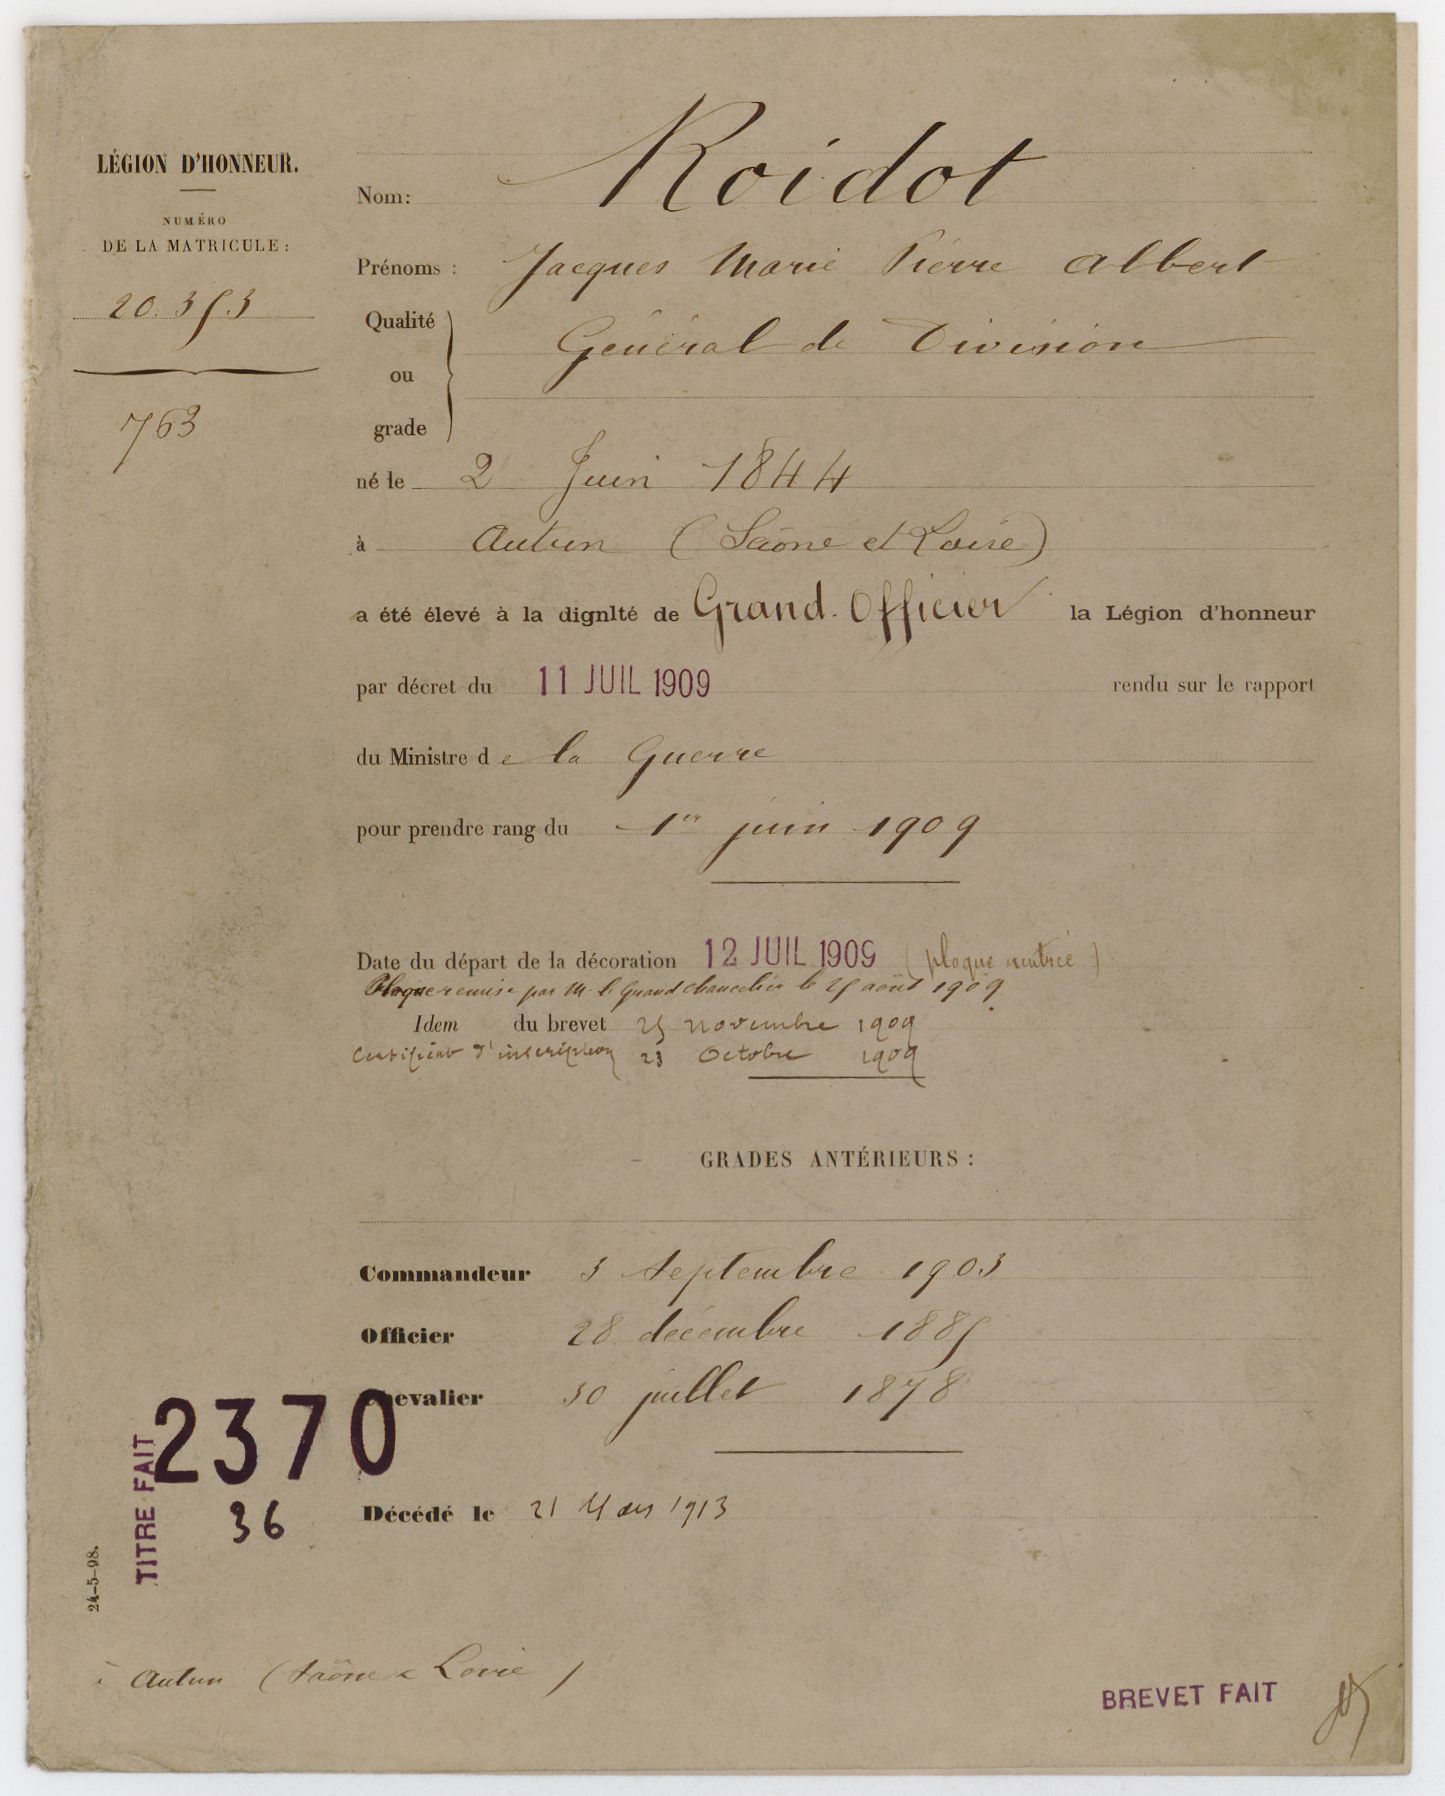 LÉGION D'HONNEUR.
NUMÉRO
DE LA MATRICULE :
20.353
763
Nom: Roidot
Prénoms : Jacques Marie Pierre Albert
Qualité ou grade Général de Division
né le 2 Juin 1844
à Autun (Saône et Loire)
a été élevé à la dignité de Grand-Officier la Légion d'honneur
par décret du 11 JUIL 1909 rendu sur le rapport
du Ministre de la Guerre
pour prendre rang du 1er juin 1909
Date du départ de la décoration 12 JUIL 1909 (plaque rentrée)
Plaque remise par M. le Grand chancelier le 25 août 1909.
Idem du brevet 25 novembre 1909
Certificat d'inscription 23 Octobre 1909
GRADES ANTÉRIEURS :
Commandeur 3 Septembre 1903
Officier 28 décembre 1885
Chevalier 30 juillet 1878
2370
TITRE FAIT
36
Décédé le 21 Mars 1913
24-5-98.
à Autun (Saône & Loire)
BREVET FAIT